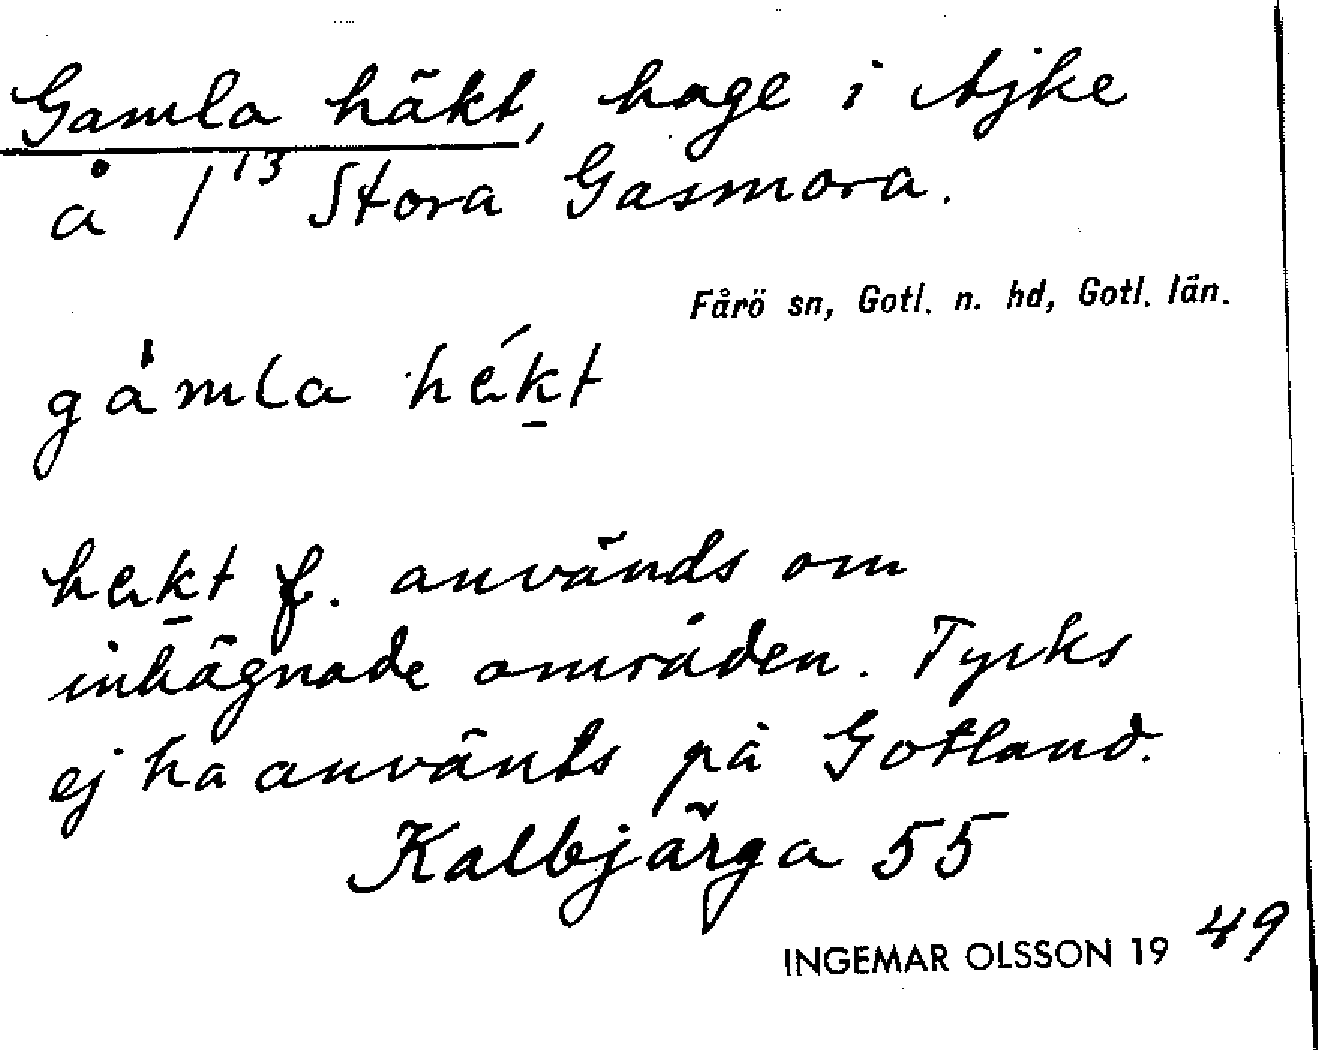 Gamla häkt, hage i Ajke
å 1¹³ Stora Gasmora.
Fårö sn, Gotl. n. hd, Gotl. län.
gámla hékt
hekt f. används om
inhägnade områden. Tycks
ej ha använts på Gotland.
Kalbjärga 55
INGEMAR OLSSON 19 49